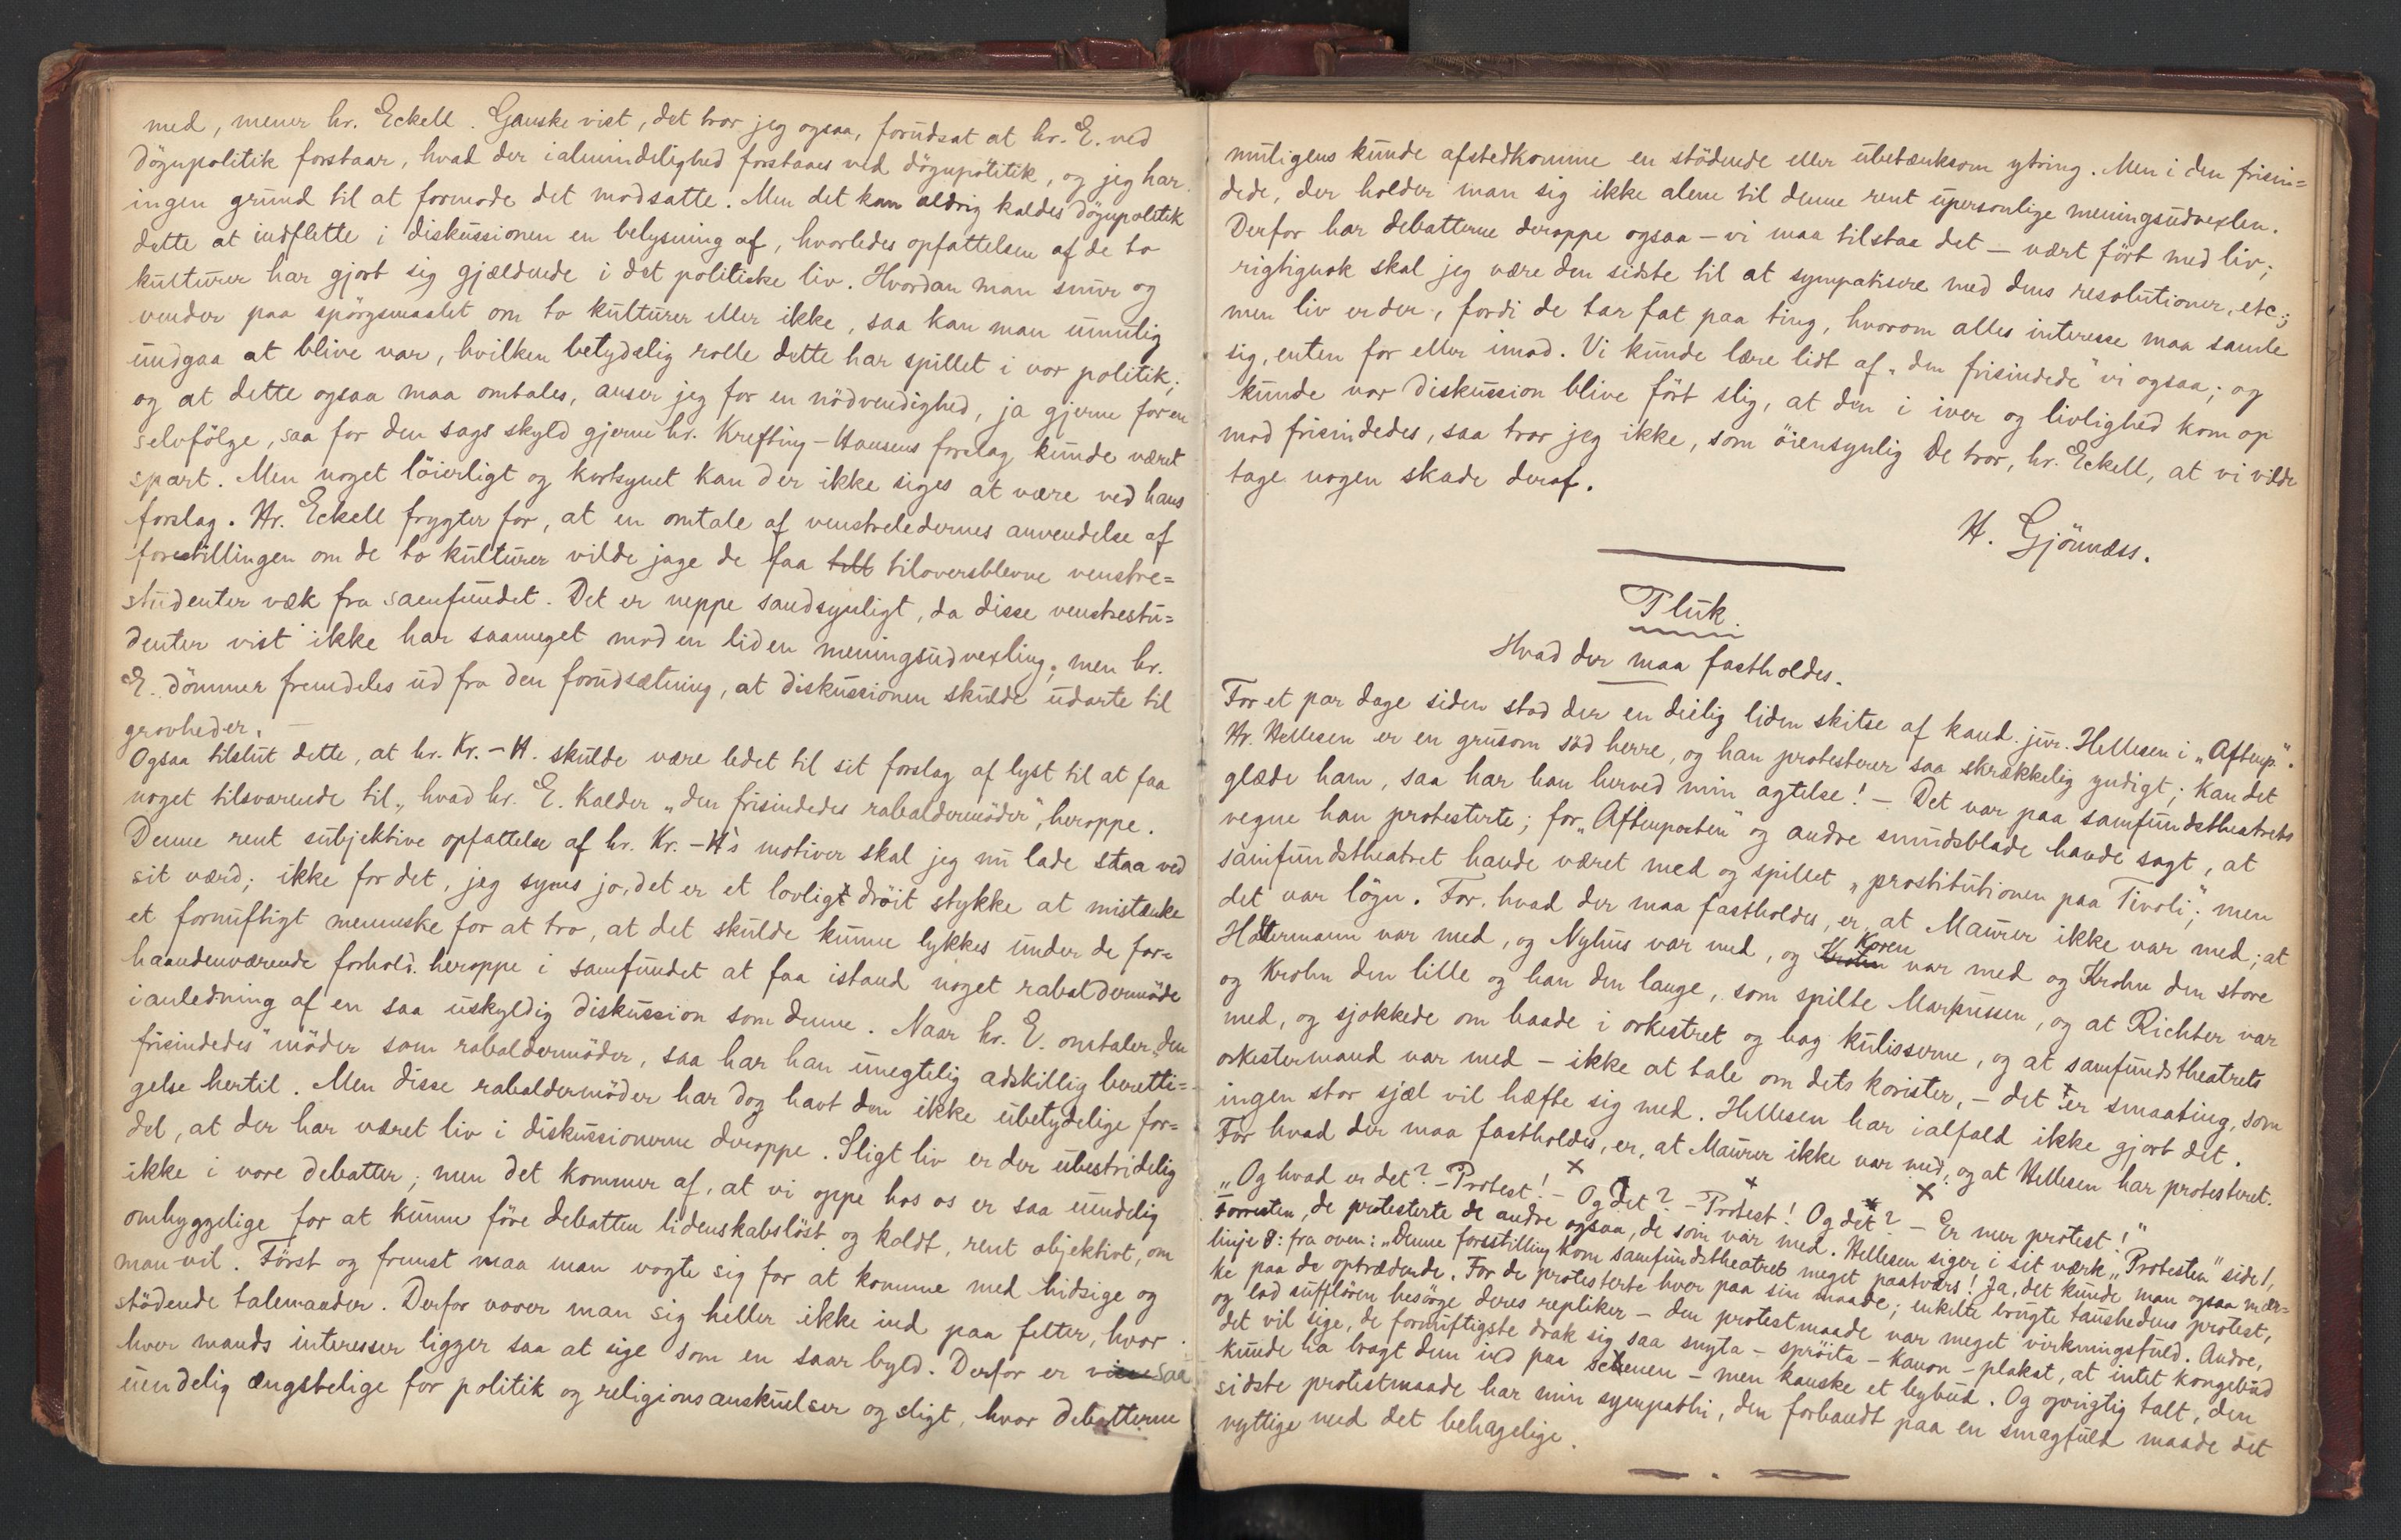 med, mener hr. Eckell. Ganske vist, det tror jeg ogsaa, forudsat at hr. E. ved
døgnpolitik forstaar, hvad der i almindelighed forstaaes ved døgnpolitik, og jeg har
ingen grund til at formode det modsatte. Men det kan aldrig kaldes døgnpolitik
dette at indflette i diskussionen en belysning af, hvorledes opfattelsen af de to
kulturer har gjort sig gjældende i det politiske liv. Hvordan man snur og
vender paa spörgsmaalet om to kulturer eller ikke, saa kan man umulig
undgaa at blive var, hvilken betydelig rolle dette har spillet i vor politik;
og at dette ogsaa maa omtales, anser jeg for en nödvendighed, ja gjerne for en
selvfölge, saa for den sags skyld gjerne hr. Krefting-Hansens forslag kunde været
spart. Men noget löierligt og kortsynet kan der ikke siges at være ved hans
forslag. Hr. Eckell frygter for, at en omtale af venstreledernes anvendelse af
forestillingen om de to kulturer vilde jage de faa till tiloversblevne venstre=
studenter væk fra samfundet. Det er neppe sandsynligt, da disse venstrestu=
denter vist ikke har saameget mod en liden meningsudvexling; men hr.
E. dömmer fremdeles ud fra den forudsætning, at diskussionen skulde udarte til
grovheder. —
Ogsaa tilslut dette, at hr. Kr.-H. skulde være ledet til sit forslag af lyst til at faa
noget tilsvarende til, hvad hr. E. kalder „den frisindedes rabaldermöder", heroppe.
Denne rent subjektive opfattelse af hr. Kr.-H's motiver skal jeg nu lade staa ved
sit værd; ikke for det, jeg synes jo, det er et lovligt dröit stykke at mistænke
et fornuftigt menneske for at tro, at det skulde kunne lykkes under de for=
haandenværende forhold heroppe i samfundet at faa istand noget rabaldermöde
i anledning af en saa uskyldig diskussion som denne. Naar hr. E. omtaler „den
frisindedes" möder som rabaldermöder, saa har han unegtelig adskillig beretti=
gelse hertil. Men disse rabaldermöder har dog havt den ikke ubetydelige for=
del, at der har været liv i diskussionerne deroppe. Sligt liv er der ubestridelig
ikke i vore debatter; men det kommer af, at vi oppe hos os er saa uendelig
omhyggelige for at kunne före debatten lidenskabslöst og koldt, rent objektivt, om
man vil. Först og fremst maa man vogte sig for at komme med hidsige og
stödende talemaader. Derfor vover man sig heller ikke ind paa felter, hvor
hver mands interesser ligger saa at sige som en saar byld. Derfor er vi saa
uendelig ængstelige for politik og religionsanskuelser og sligt, hvor debatterne
muligens kunde afstedkomme en stödende eller ubetænksom ytring. Men i den frisin=
dede, der holder man sig ikke alene til denne rent upersonlige meningsudvexlen.
Derfor har debatterne deroppe ogsaa – vi maa tilstaa det – vært fört med liv;
rigtignok skal jeg være den sidste til at sympatisere med dens resolutioner, etc;
men liv er der, fordi de tar fat paa ting, hvorom alles interesse maa samle
sig, enten for eller imod. Vi kunde lære lidt af „den frisindede" vi ogsaa; og
kunde vor diskussion blive fört slig, at den i iver og livlighed kom op
mod frisindedes, saa tror jeg ikke, som öiensynlig De tror, hr. Eckell, at vi vilde
tage nogen skade deraf.
H. Gjönnæss.
Pluk.
Hvad der maa fastholdes.
For et par dage siden stod der en deilig liden skitse af kand. jur. Hellesen i „Aftenp".
Hr. Hellesen er en grusom söd herre, og han protesterer saa skrækkelig yndigt; kan det
glæde ham, saa har han herved min agtelse! – Det var paa samfundstheatrets
vegne han protesterte; for „Aftenposten" og andre smudsblade havde sagt, at
samfundstheatret havde været med og spillet „prostitutionen paa Tivoli"; men
det var lögn. For, hvad der maa fastholdes, er, at Maurer ikke var med; at
Haltermann var med, og Nyhus var med, og Koren var med og Krohn den store
og Krohn den lille og han den lange, som spilte Markussen, og at Richter var
med, og sjokkede om baade i orkestret og bag kulisserne, og at samfundstheatrets
orkestermand var med – ikke at tale om dets korister, – det er smaating, som
ingen stor sjæl vil hæfte sig med. Hellesen har ialfald ikke gjort det.
For hvad der maa fastholdes, er, at Maurer ikke var med, og at Hellesen har protesteret.
„Og hvad er det? – Protest! – Og det? – Protest! Og det? – Er mer protest!"
Forresten, de protesterte de andre ogsaa, de som var med. Hellesen siger i sit værk „Protesten" side 1,
linje 8: fra oven: „Denne forestilling kom samfundstheatret meget paatværs! Ja, det kunde man ogsaa mær=
ke paa de optrædende. For de protesterte hver paa sin maade; enkelte brugte taushedens protest,
og lod sufflören besörge deres repliker – den protestmaade var meget virkningsfuld. Andre,
det vil sige, de fornuftigste drak sig saa snyta – spröita – kanon – plakat, at intet kongebud
kunde ha bragt dem ind paa scenen – men kanske et legbud. Og oprigtig talt, den
sidste protestmaade har min sympathi, den forbandt paa en smagfuld maade det
nyttige med det behagelige.